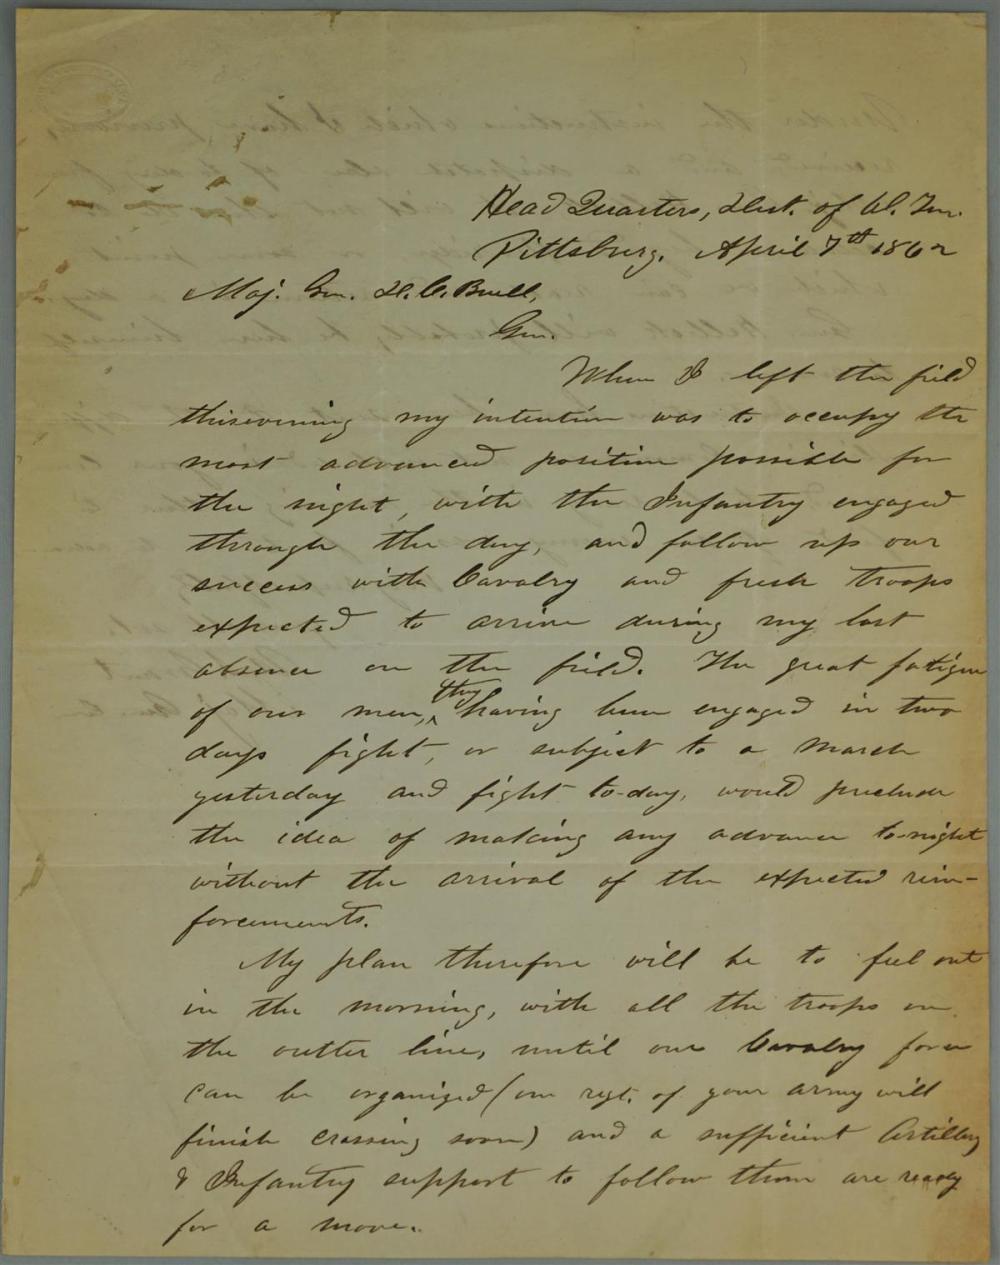 Head Quarters, Dist. of W. Ten.
Pittsburg, April 7th 1862
Maj. Gen. D. C. Buell,
Gen.
When I left the field
this evening my intention was to occupy the
most advanced position possible for
the night, with the Infantry engaged
through the day, and follow up our
success with Cavalry and fresh troops
expected to arrive during my last
absence on the field. The great fatigue
of our men, they having been engaged in two
days fight, or subject to a march
yesterday and fight to-day, would preclude
the idea of making any advance to-night
without the arrival of the expected rein-
forcements.
My plan therefore will be to feel out
in the morning, with all the troops on
the outter line, until our Cavalry force
can be organized (one regt. of your army will
finish crossing soon) and a sufficient Artillery
& Infantry support to follow them are ready
for a move.